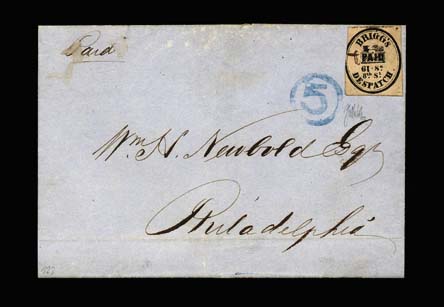 Paid
BRIGG'S
PAID
61 · S?
8th St
DESPATCH
5
Wm. H. Newbold Esqr
Philadelphia